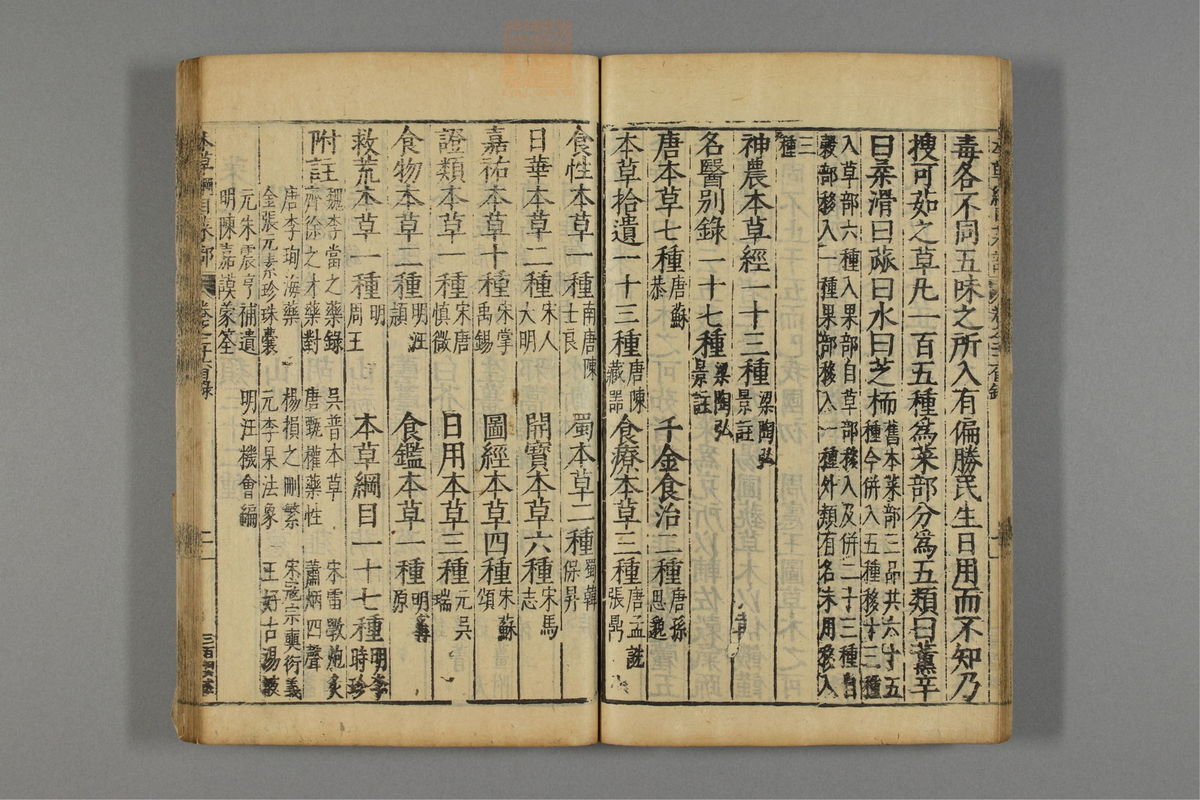 毒各不同五味之所入有偏勝民生日用而不知乃
搜可茹之草凡一百五種為菜部分為五類曰薰辛
曰柔滑曰蓏曰水曰芝栭舊本菜部三品共六十五
種今併入五種移十三種
入草部六種入果部自草部移入及併二十三種自
穀部移入一種果部移入一種外類有名未用移入
三
種
神農本草經一十三種梁陶弘
景註
名醫別錄一十七種梁陶弘
景註
唐本草七種唐蘇
恭
千金食治二種唐孫
思邈
本草拾遺一十三種唐陳
藏器
食療本草三種唐孟詵
張鼎
食性本草一種南唐陳
士良
蜀本草二種蜀韓
保昇
日華本草二種宋人
大明
開寶本草六種宋馬
志
嘉祐本草十種宋掌
禹錫
圖經本草四種宋蘇
頌
證類本草一種宋唐
慎微
日用本草三種元吳
瑞
食物本草二種明汪
穎
食鑑本草一種明甯
原
救荒本草一種明
周王
本草綱目一十七種明李
時珍
附註
魏李當之藥錄
吳普本草
宋雷斆炮炙
齊徐之才藥對
唐甄權藥性
蕭炳四聲
唐李珣海藥
楊損之刪繁
宋寇宗奭衍義
金張元素珍珠囊
元李杲法象
王好古湯液
元朱震亨補遺
明汪機會編
明陳嘉謨蒙筌
本草綱目菜部
卷之二十六目錄